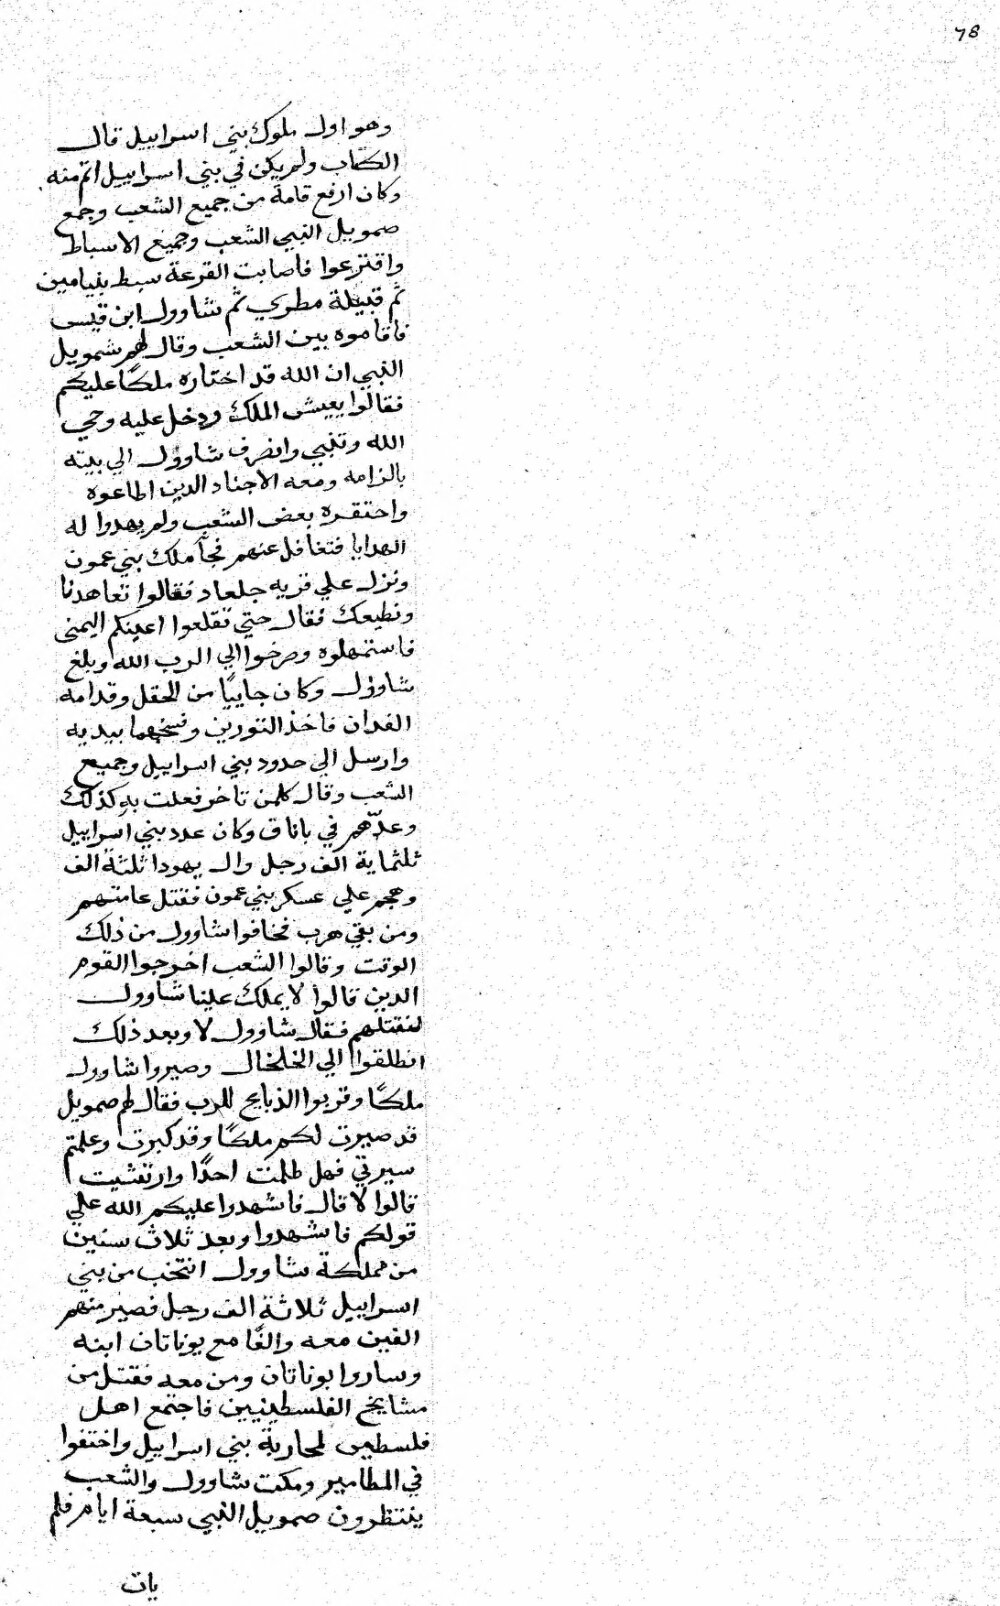 78
وهو اول ملوك بني اسراييل قال
الكتاب ولم يكن في بني اسراييل اتم منه
وكان ارفع قامة من جميع الشعب وجمع
صمويل النبي الشعب وجميع الاسباط
واقترعوا فاصابت القرعة سبط بنيامين
ثم قبيلة مطري ثم شاوول ابن قيس
فاقاموه بين الشعب وقال لهم شمويل
النبي ان الله قد اختاره ملكًا عليكم
فقالوا يعيش الملك ودخل عليه وحي
الله وتنبي وانصرف شاوول الي بيته
بالرامه ومعه الاجناد الدين اطاعوه
واحتقره بعض الشعب ولم يهدوا له
الهدايا فتغافل عنهم فجآ ملك بني عمون
ونزل علي قريه جلعاد فقالوا تعاهدنا
ونطيعك فقال حتي تقلعوا اعينكم اليمنى
فاستمهلوه وصرخوا الي الرب الله وبلغ
شاوؤل وكان جاييًا من الحقل وقدامه
الفدان فاخذ الثورين وفسخهما بيديه
وارسل الي حدود بني اسراييل وجميع
الشعب وقال كلمن تاخر فعلت به كذلك
وعدّهم في باناق وكان عدد بني اسراييل
ثلثماية الف رجل وال يهودا ثلثة الف
وهجم علي عسكر بني عمون فقتل عامتهم
ومن بقي هرب فخافوا شاوول من ذلك
الوقت وقالوا الشعب اخرجوا القوم
الدين قالوا لا يملك علينا شاوول
لنقتلهم فقال شاوول لا وبعد ذلك
انطلقوا الي الخلخال وصيروا شاوول
ملكًا وقربوا الذبايح للرب فقال لهم صمويل
قد صيرت لكم ملكًا وقد كبرت وعلمتم
سيرتي فهل ظلمت احدًا وارتشيت
قالوا لا قال فاشهدوا عليكم الله علي
قولكم فاشهدوا وبعد ثلاث سنين
من مملكة شاوول انتخب من بني
اسراييل ثلاثة الف رجل فصير منهم
الفين معه والفًا مع يوناتان ابنه
وساروا يوناتان ومن معه فقتل من
مشايخ الفلسطينيين فاجتمع اهل
فلسطين لمحاربة بني اسراييل واختفوا
في المطامير ومكث شاوول والشعب
ينتظرون صمويل النبي سبعة ايام فلم
يات